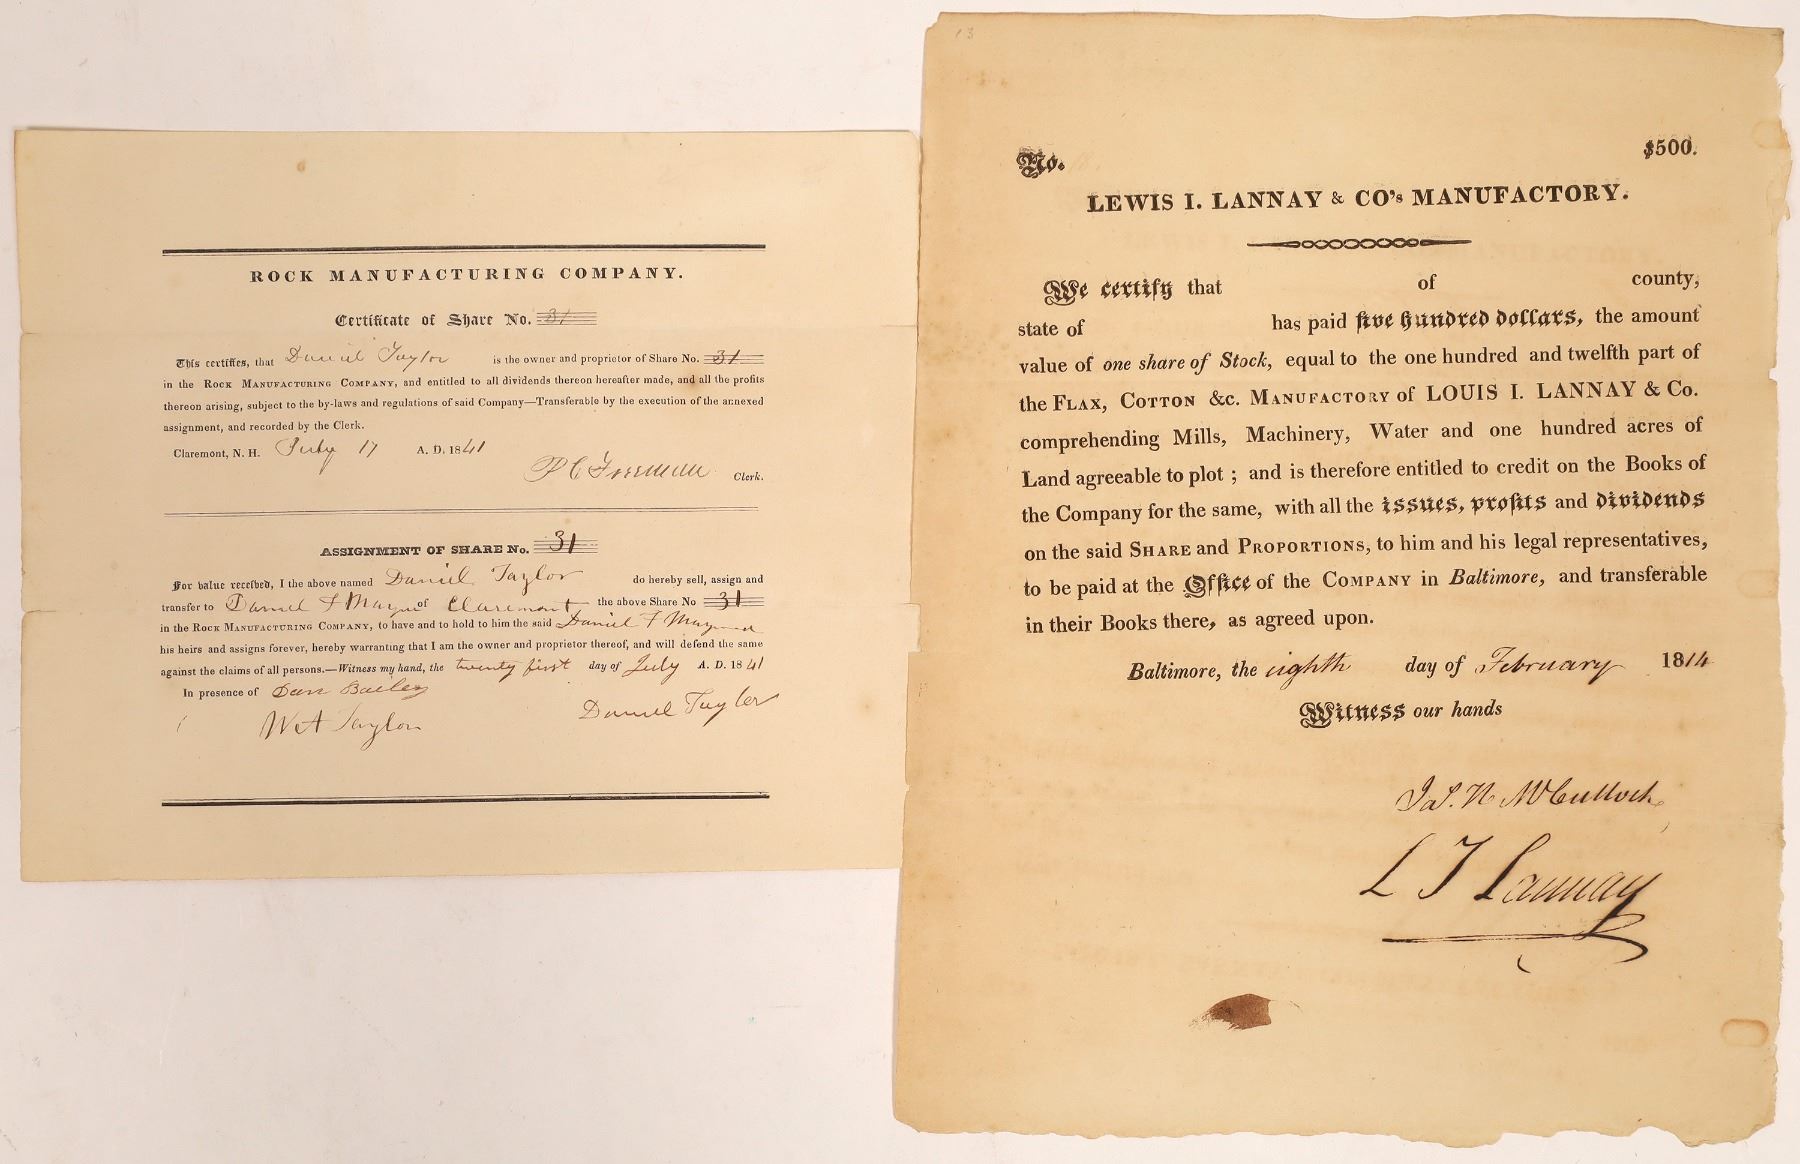 ROCK MANUFACTURING COMPANY.
Certificate of Share No. 31
This certifies, that Daniel Taylor is the owner and proprietor of Share No. 31
in the ROCK MANUFACTURING COMPANY, and entitled to all dividends thereon hereafter made, and all the profits
thereon arising, subject to the by-laws and regulations of said Company—Transferable by the execution of the annexed
assignment, and recorded by the Clerk.
Claremont, N. H. July 17 A. D. 1841
P C Freeman Clerk.
ASSIGNMENT OF SHARE No. 31
For value received, I the above named Daniel Taylor do hereby sell, assign and
transfer to Daniel F of Claremont the above Share No 31
in the ROCK MANUFACTURING COMPANY, to have and to hold to him the said Daniel F
his heirs and assigns forever, hereby warranting that I am the owner and proprietor thereof, and will defend the same
against the claims of all persons.—Witness my hand, the twenty first day of July A. D. 1841
In presence of Dan Bailey
W A Taylor
Daniel Taylor
13
No. $500.
LEWIS I. LANNAY & CO's MANUFACTORY.
We certify that of county,
state of has paid five hundred dollars, the amount
value of one share of Stock, equal to the one hundred and twelfth part of
the FLAX, COTTON &c. MANUFACTORY of LOUIS I. LANNAY & Co.
comprehending Mills, Machinery, Water and one hundred acres of
Land agreeable to plot ; and is therefore entitled to credit on the Books of
the Company for the same, with all the issues, profits and dividends
on the said SHARE and PROPORTIONS, to him and his legal representatives,
to be paid at the Office of the COMPANY in Baltimore, and transferable
in their Books there, as agreed upon.
Baltimore, the eighth day of February 1814
Witness our hands
Jas. H McCulloch
L I Lannay